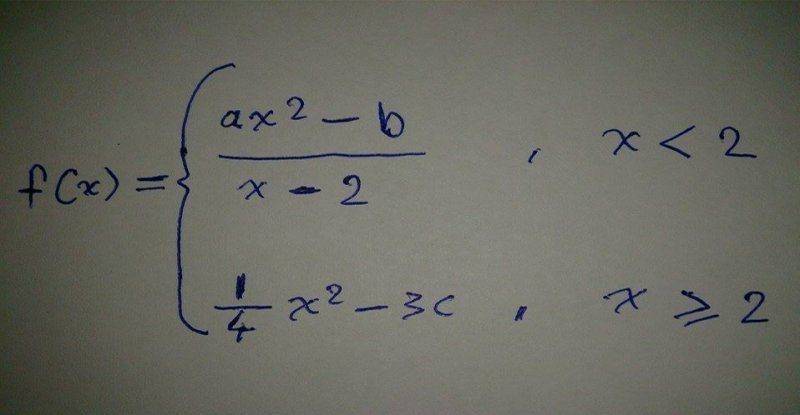 f(x) = { (ax² - b)/(x - 2) , x < 2
1/4 x² - 3c , x ≥ 2